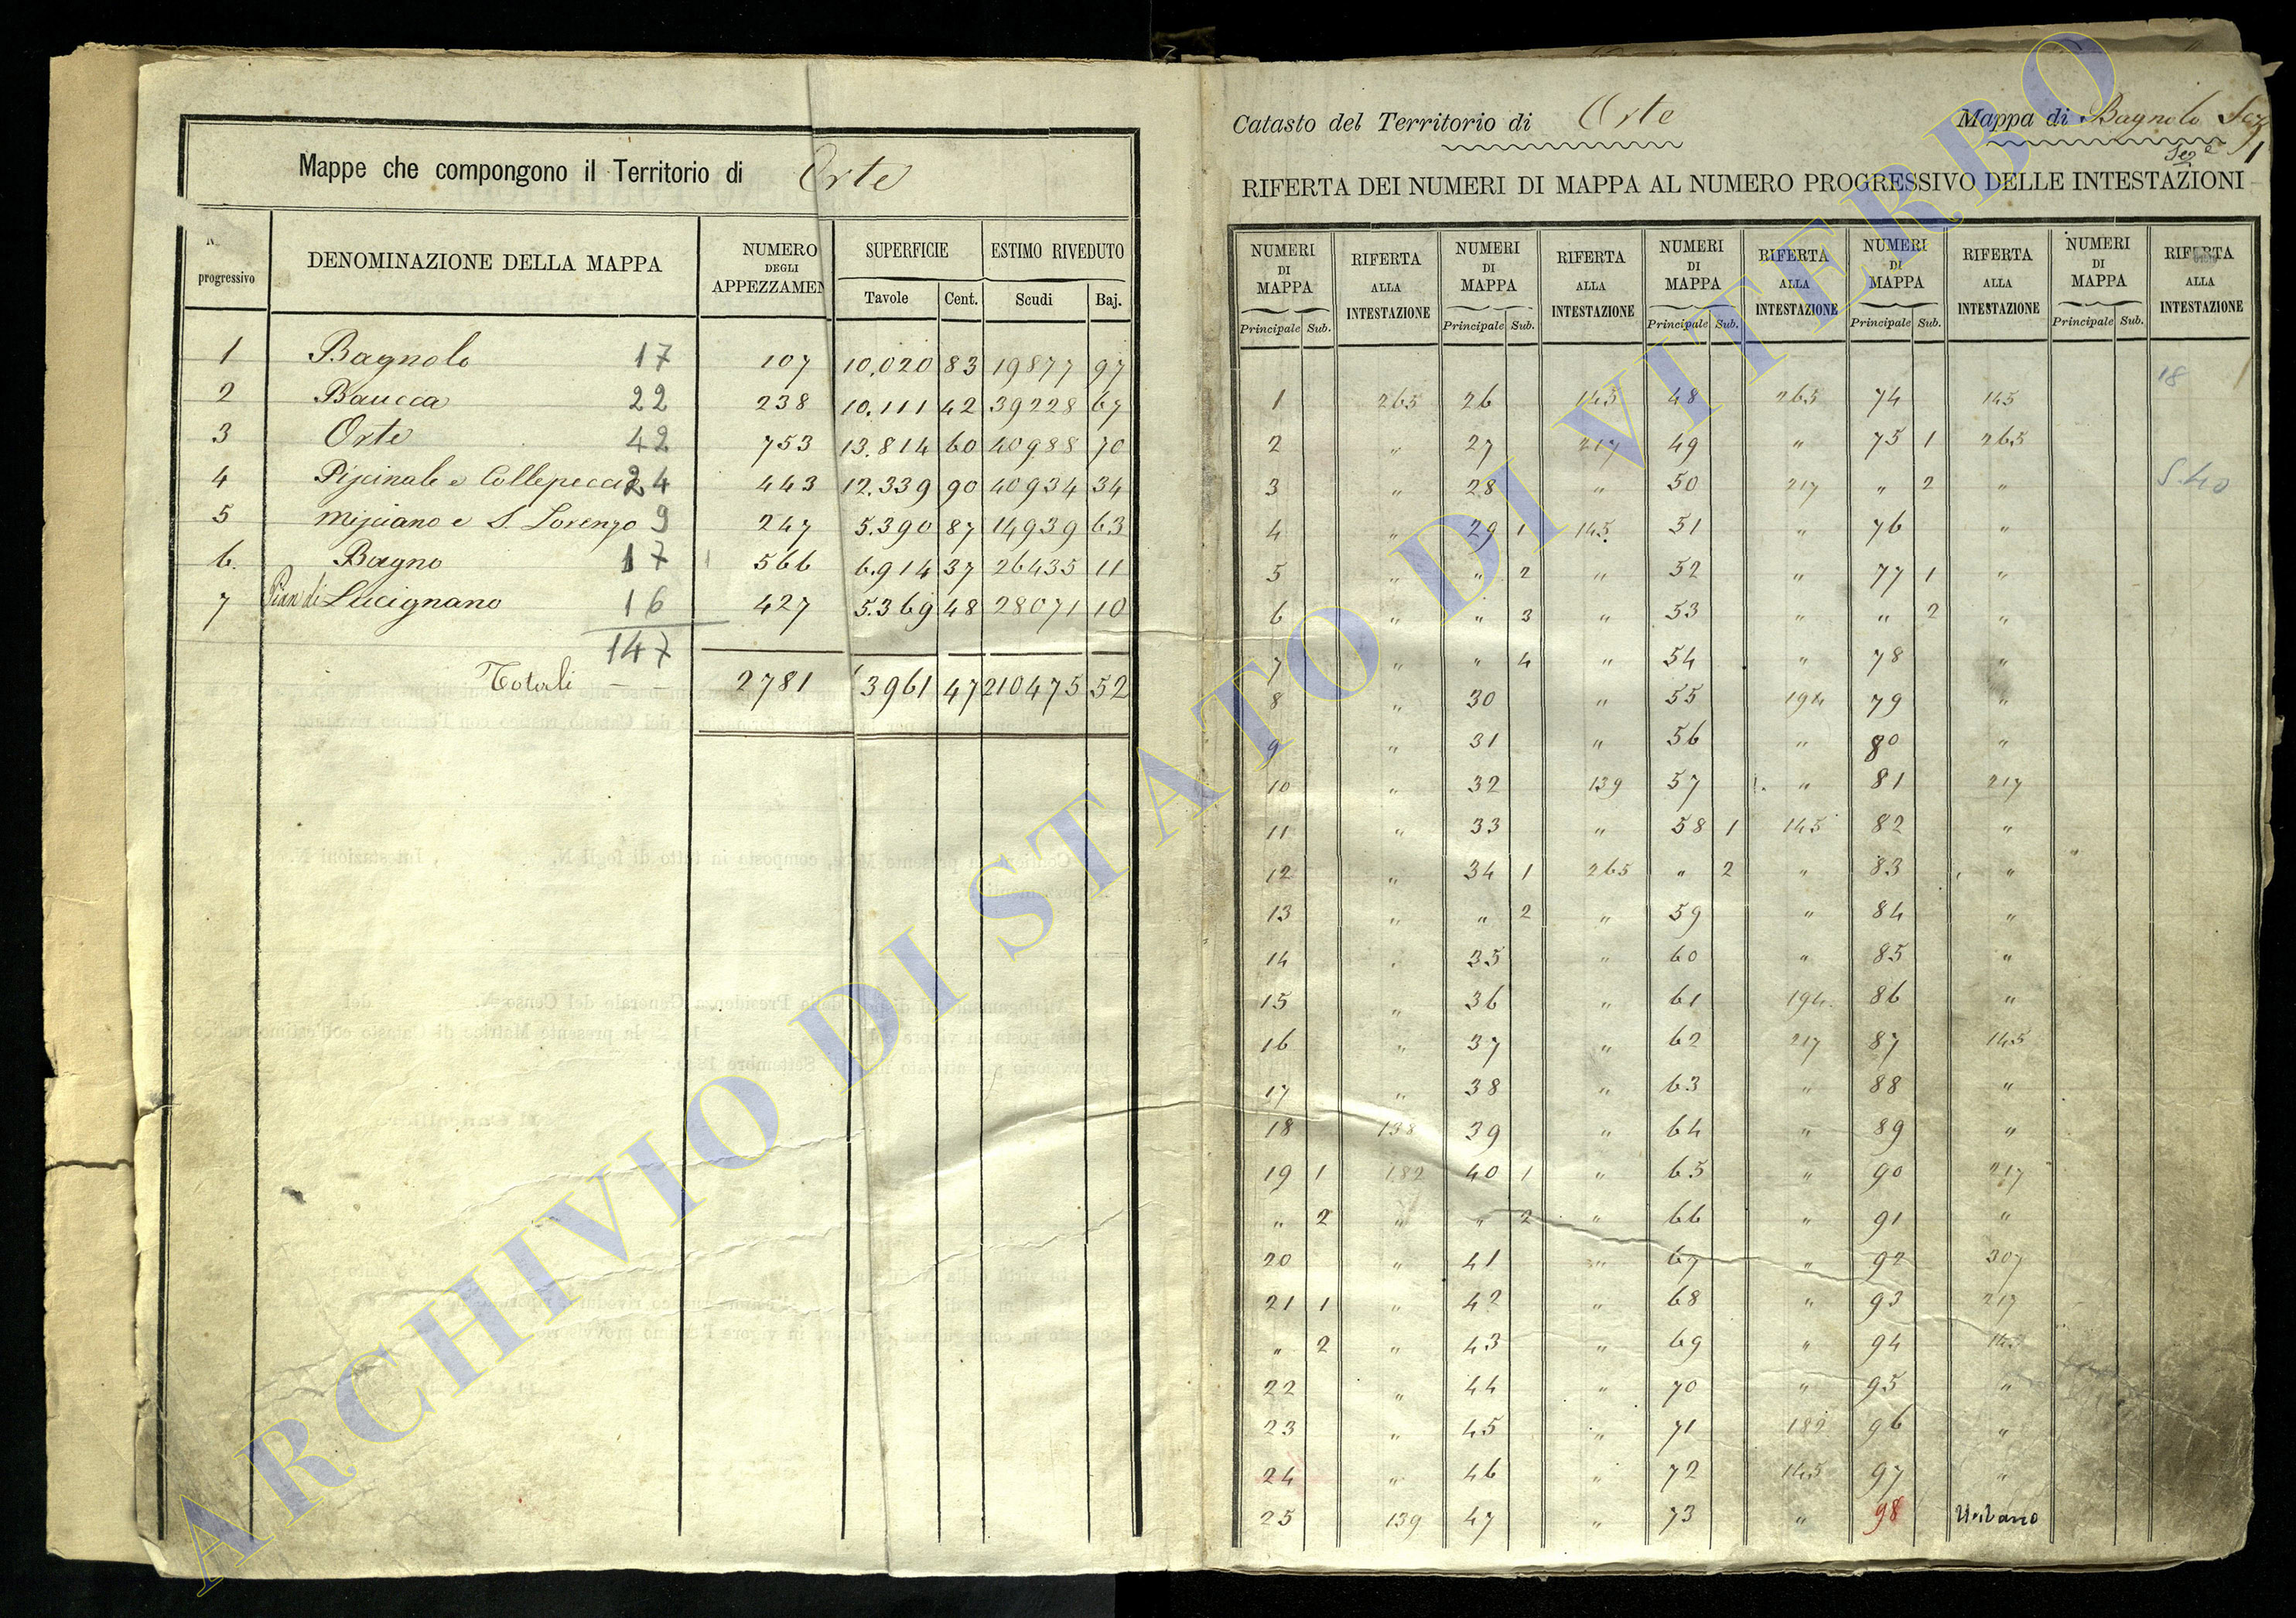 Mappe che compongono il Territorio di Orte
N. progressivo | DENOMINAZIONE DELLA MAPPA | NUMERO DEGLI APPEZZAMEN | SUPERFICIE Tavole Cent. | ESTIMO RIVEDUTO Scudi Baj.
1 Bagnolo 17 107 10,020 83 19877 97
2 Baucca 22 238 10.111 42 39228 67
3 Orte 42 753 13.814 60 40988 70
4 Piscinale e Collepeccio 24 443 12.339 90 40934 34
5 Misciano e S. Lorenzo 9 247 5.390 87 14939 63
6. Bagno 17 566 6.914 37 26435 11
7 Pian di Lucignano 16 427 5.369 48 28071 10
147
Totali 2781 63961 47 210475 52
Catasto del Territorio di Orte Mappa di Bagnolo Sez
Sez e 1
RIFERTA DEI NUMERI DI MAPPA AL NUMERO PROGRESSIVO DELLE INTESTAZIONI
NUMERI DI MAPPA Principale Sub. | RIFERTA ALLA INTESTAZIONE | NUMERI DI MAPPA Principale Sub. | RIFERTA ALLA INTESTAZIONE | NUMERI DI MAPPA Principale Sub. | RIFERTA ALLA INTESTAZIONE | NUMERI DI MAPPA Principale Sub. | RIFERTA ALLA INTESTAZIONE | NUMERI DI MAPPA Principale Sub. | RIFERTA ALLA INTESTAZIONE
18 1
1 265 26 145 48 265 74 145
2 " 27 217 49 " 75 1 265
3 " 28 " 50 217 " 2 " S.40
4 " 29 1 145 51 " 76 "
5 " " 2 " 52 " 77 1 "
6 " " 3 " 53 " " 2 "
7 " " 4 " 54 " 78 "
8 " 30 " 55 194 79 "
9 " 31 " 56 " 80 "
10 " 32 139 57 " 81 217
11 " 33 " 58 1 145 82 "
12 " 34 1 265 " 2 " 83 "
13 " " 2 " 59 " 84 "
14 " 35 " 60 " 85 "
15 " 36 " 61 194 86 "
16 " 37 " 62 217 87 145
17 " 38 " 63 " 88 "
18 138 39 " 64 " 89 "
19 1 182 40 1 " 65 " 90 217
" 2 " " 2 " 66 " 91 "
20 " 41 " 67 " 92 307
21 1 " 42 " 68 " 93 217
" 2 " 43 " 69 " 94 145
22 " 44 " 70 " 95 "
23 " 45 " 71 182 96 "
24 " 46 " 72 145 97 "
25 139 47 " 73 " 98 Urbano
ARCHIVIO DI STATO DI VITERBO